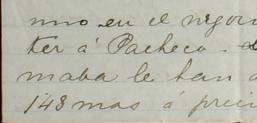 mno en el negoci
ter á Pacheco -
maba le han
148 mas ó preci